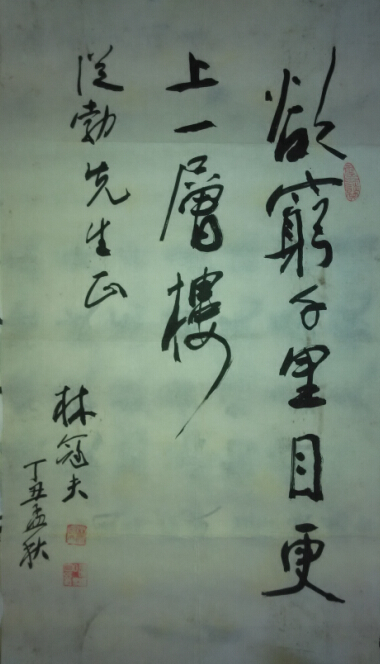 欲窮千里目更
上一層樓
從勃先生正
林冠夫
丁丑孟秋